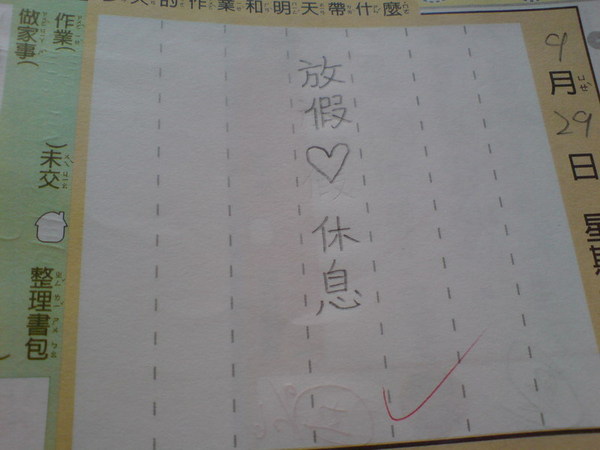 的作業和明天帶什麼
9月29日 星期
放假♡休息
作業(
做家事(
)未交
整理書包